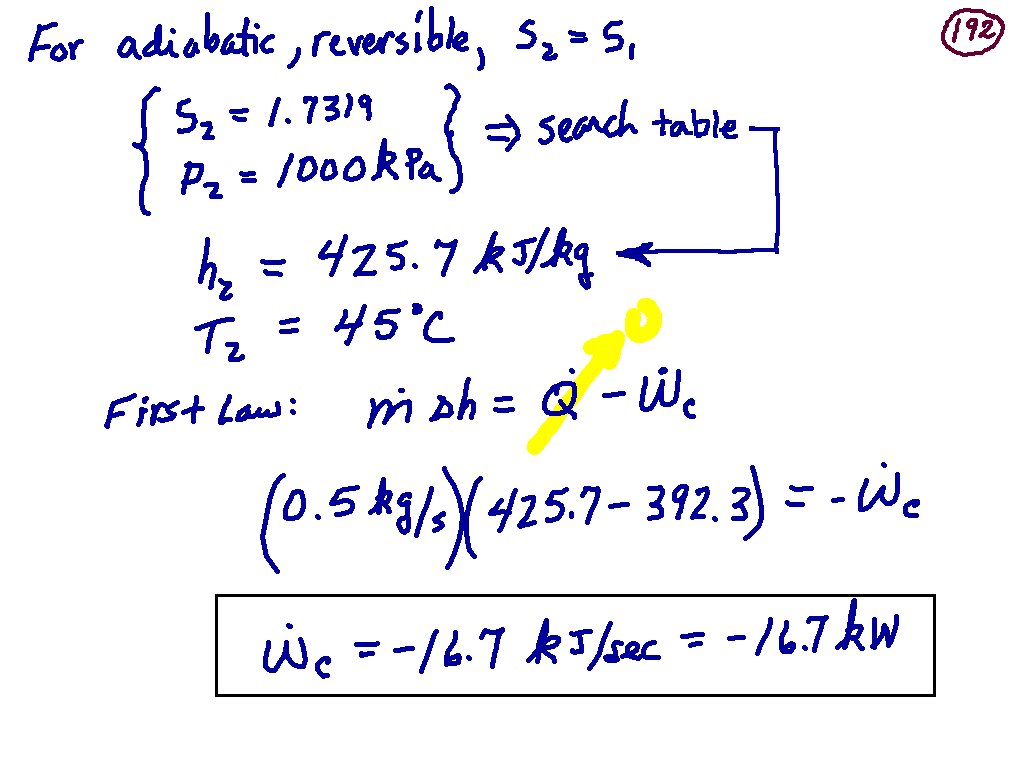 For adiabatic, reversible, S₂ = S₁
192
S₂ = 1.7319
P₂ = 1000 kPa
⇒ search table
h₂ = 425.7 kJ/kg
T₂ = 45°C
0
First Law: ṁ Δh = Q̇ - Ẇc
(0.5 kg/s)(425.7 - 392.3) = - Ẇc
Ẇc = -16.7 kJ/sec = -16.7 kW